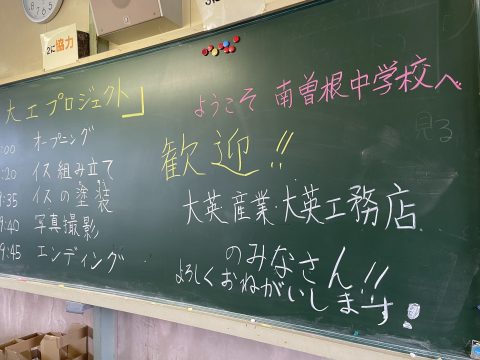 2に協力
大工プロジェクト」
:00 オープニング
:20 イス組み立て
:35 イスの塗装
9:40 写真撮影
9:45 エンディング
ようこそ 南曽根中学校へ
歓迎!!
大英産業・大英工務店
のみなさん!!
よろしくおねがいします!
見る